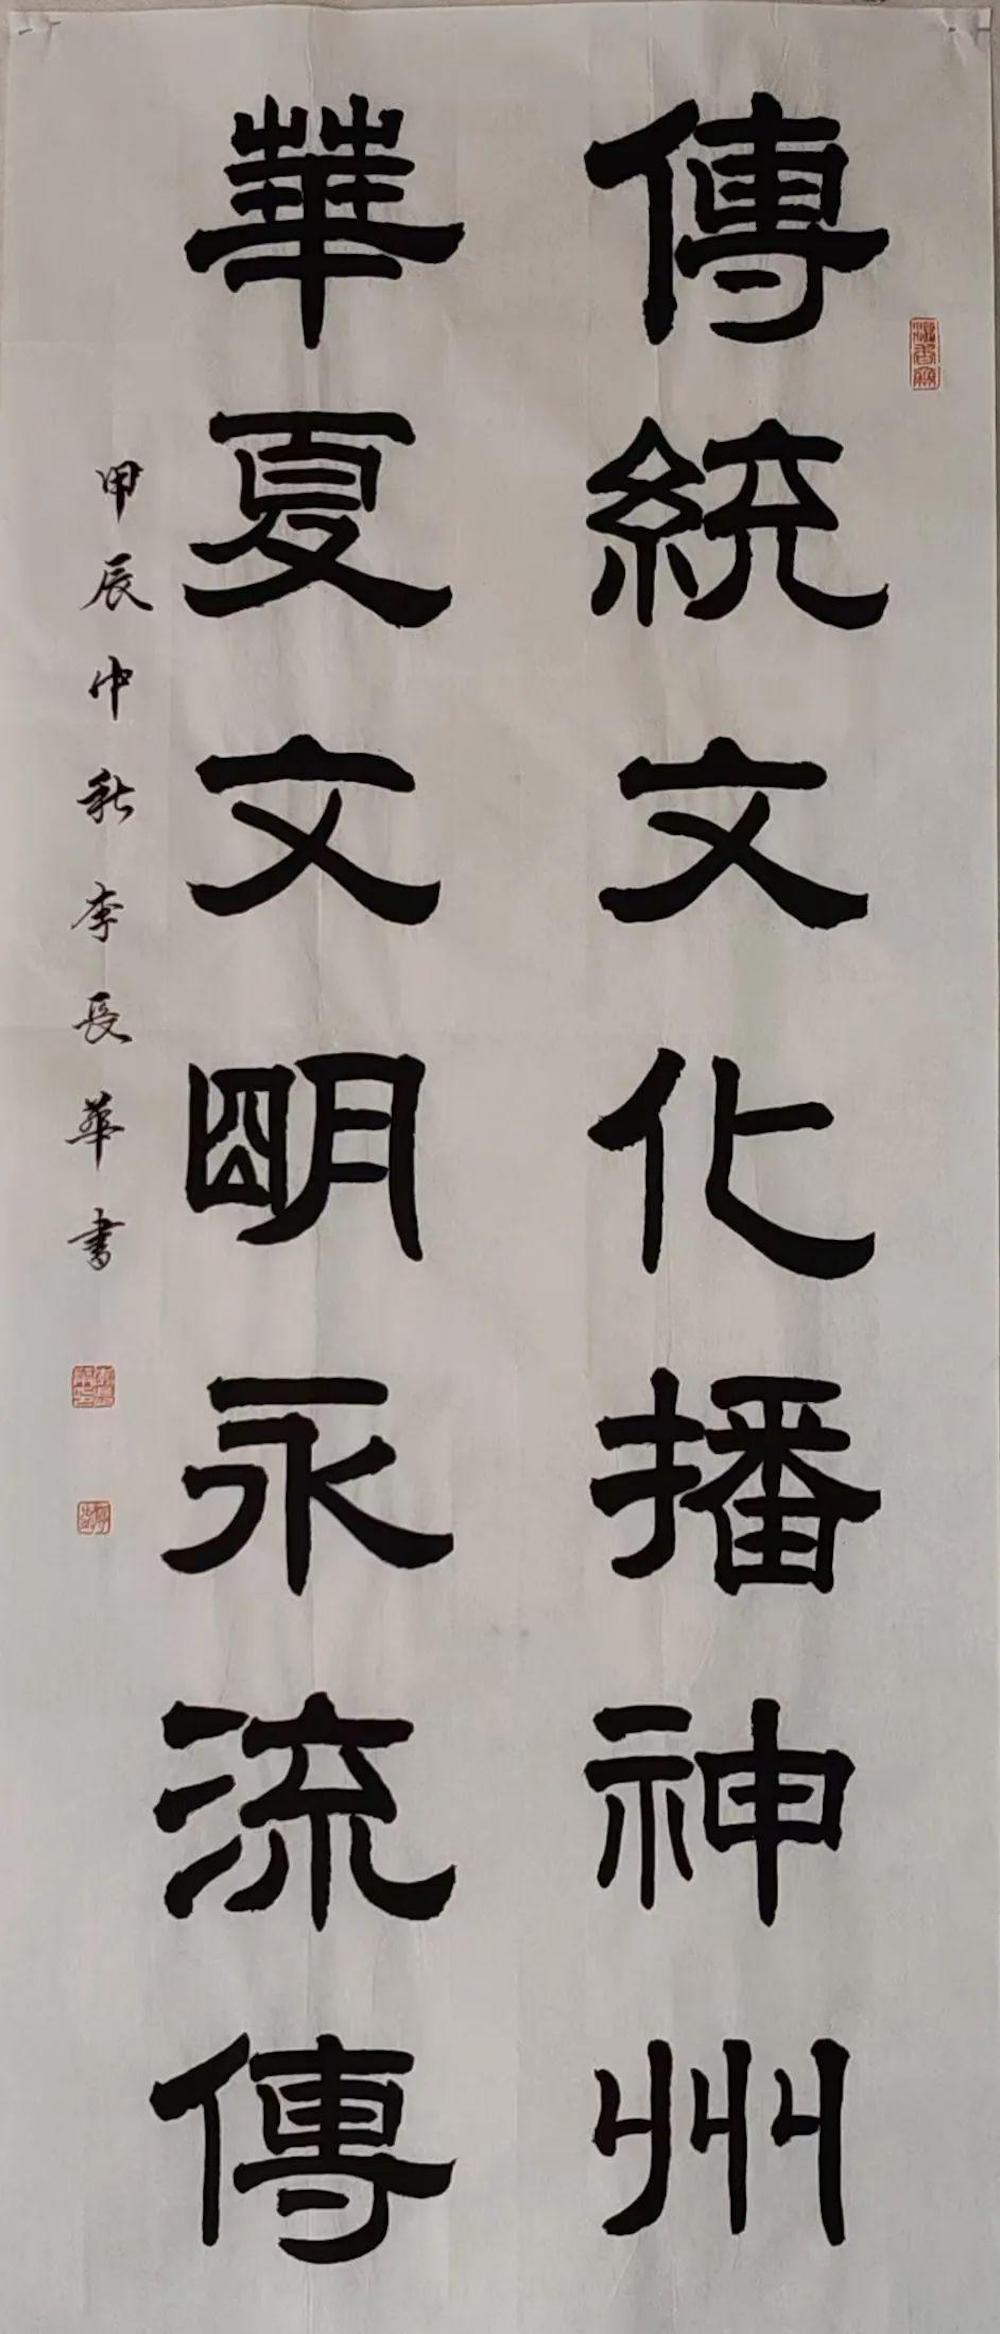 傳統文化播神州
華夏文明永流傳
甲辰中秋李長華書